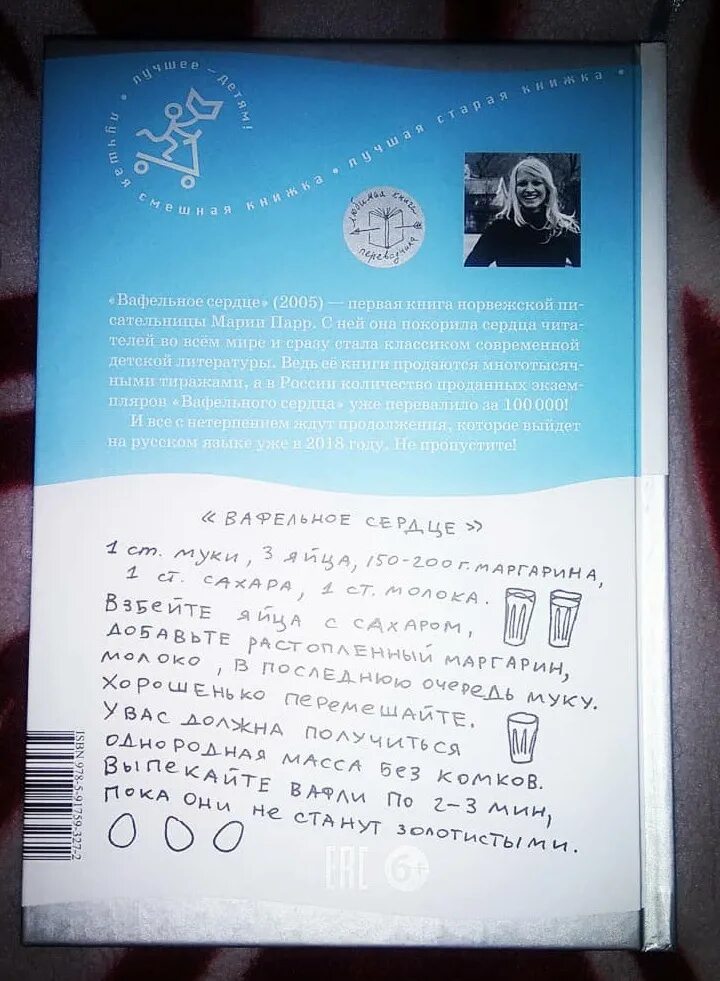 лучшее — детям!
лучшая смешная книжка • лучшая старая книжка •
любимая книга
переводчика
«Вафельное сердце» (2005) — первая книга норвежской пи-
сательницы Марии Парр. С ней она покорила сердца чита-
телей во всём мире и сразу стала классиком современной
детской литературы. Ведь её книги продаются многотысяч-
ными тиражами, а в России количество проданных экзем-
пляров «Вафельного сердца» уже перевалило за 100 000!
И все с нетерпением ждут продолжения, которое выйдет
на русском языке уже в 2018 году. Не пропустите!
« ВАФЕЛЬНОЕ СЕРДЦЕ »
1 ст. МУКИ, 3 ЯЙЦА, 150-200 г. МАРГАРИНА,
1 СТ. САХАРА, 1 СТ. МОЛОКА.
ВЗБЕЙТЕ ЯЙЦА С САХАРОМ,
ДОБАВЬТЕ РАСТОПЛЕННЫЙ МАРГАРИН,
МОЛОКО, В ПОСЛЕДНЮЮ ОЧЕРЕДЬ МУКУ.
ХОРОШЕНЬКО ПЕРЕМЕШАЙТЕ.
У ВАС ДОЛЖНА ПОЛУЧИТЬСЯ
ОДНОРОДНАЯ МАССА БЕЗ КОМКОВ.
ВЫПЕКАЙТЕ ВАФЛИ ПО 2-3 МИН,
ПОКА ОНИ НЕ СТАНУТ ЗОЛОТИСТЫМИ.
М
ISBN 978-5-91759-327-2
EAC 6+